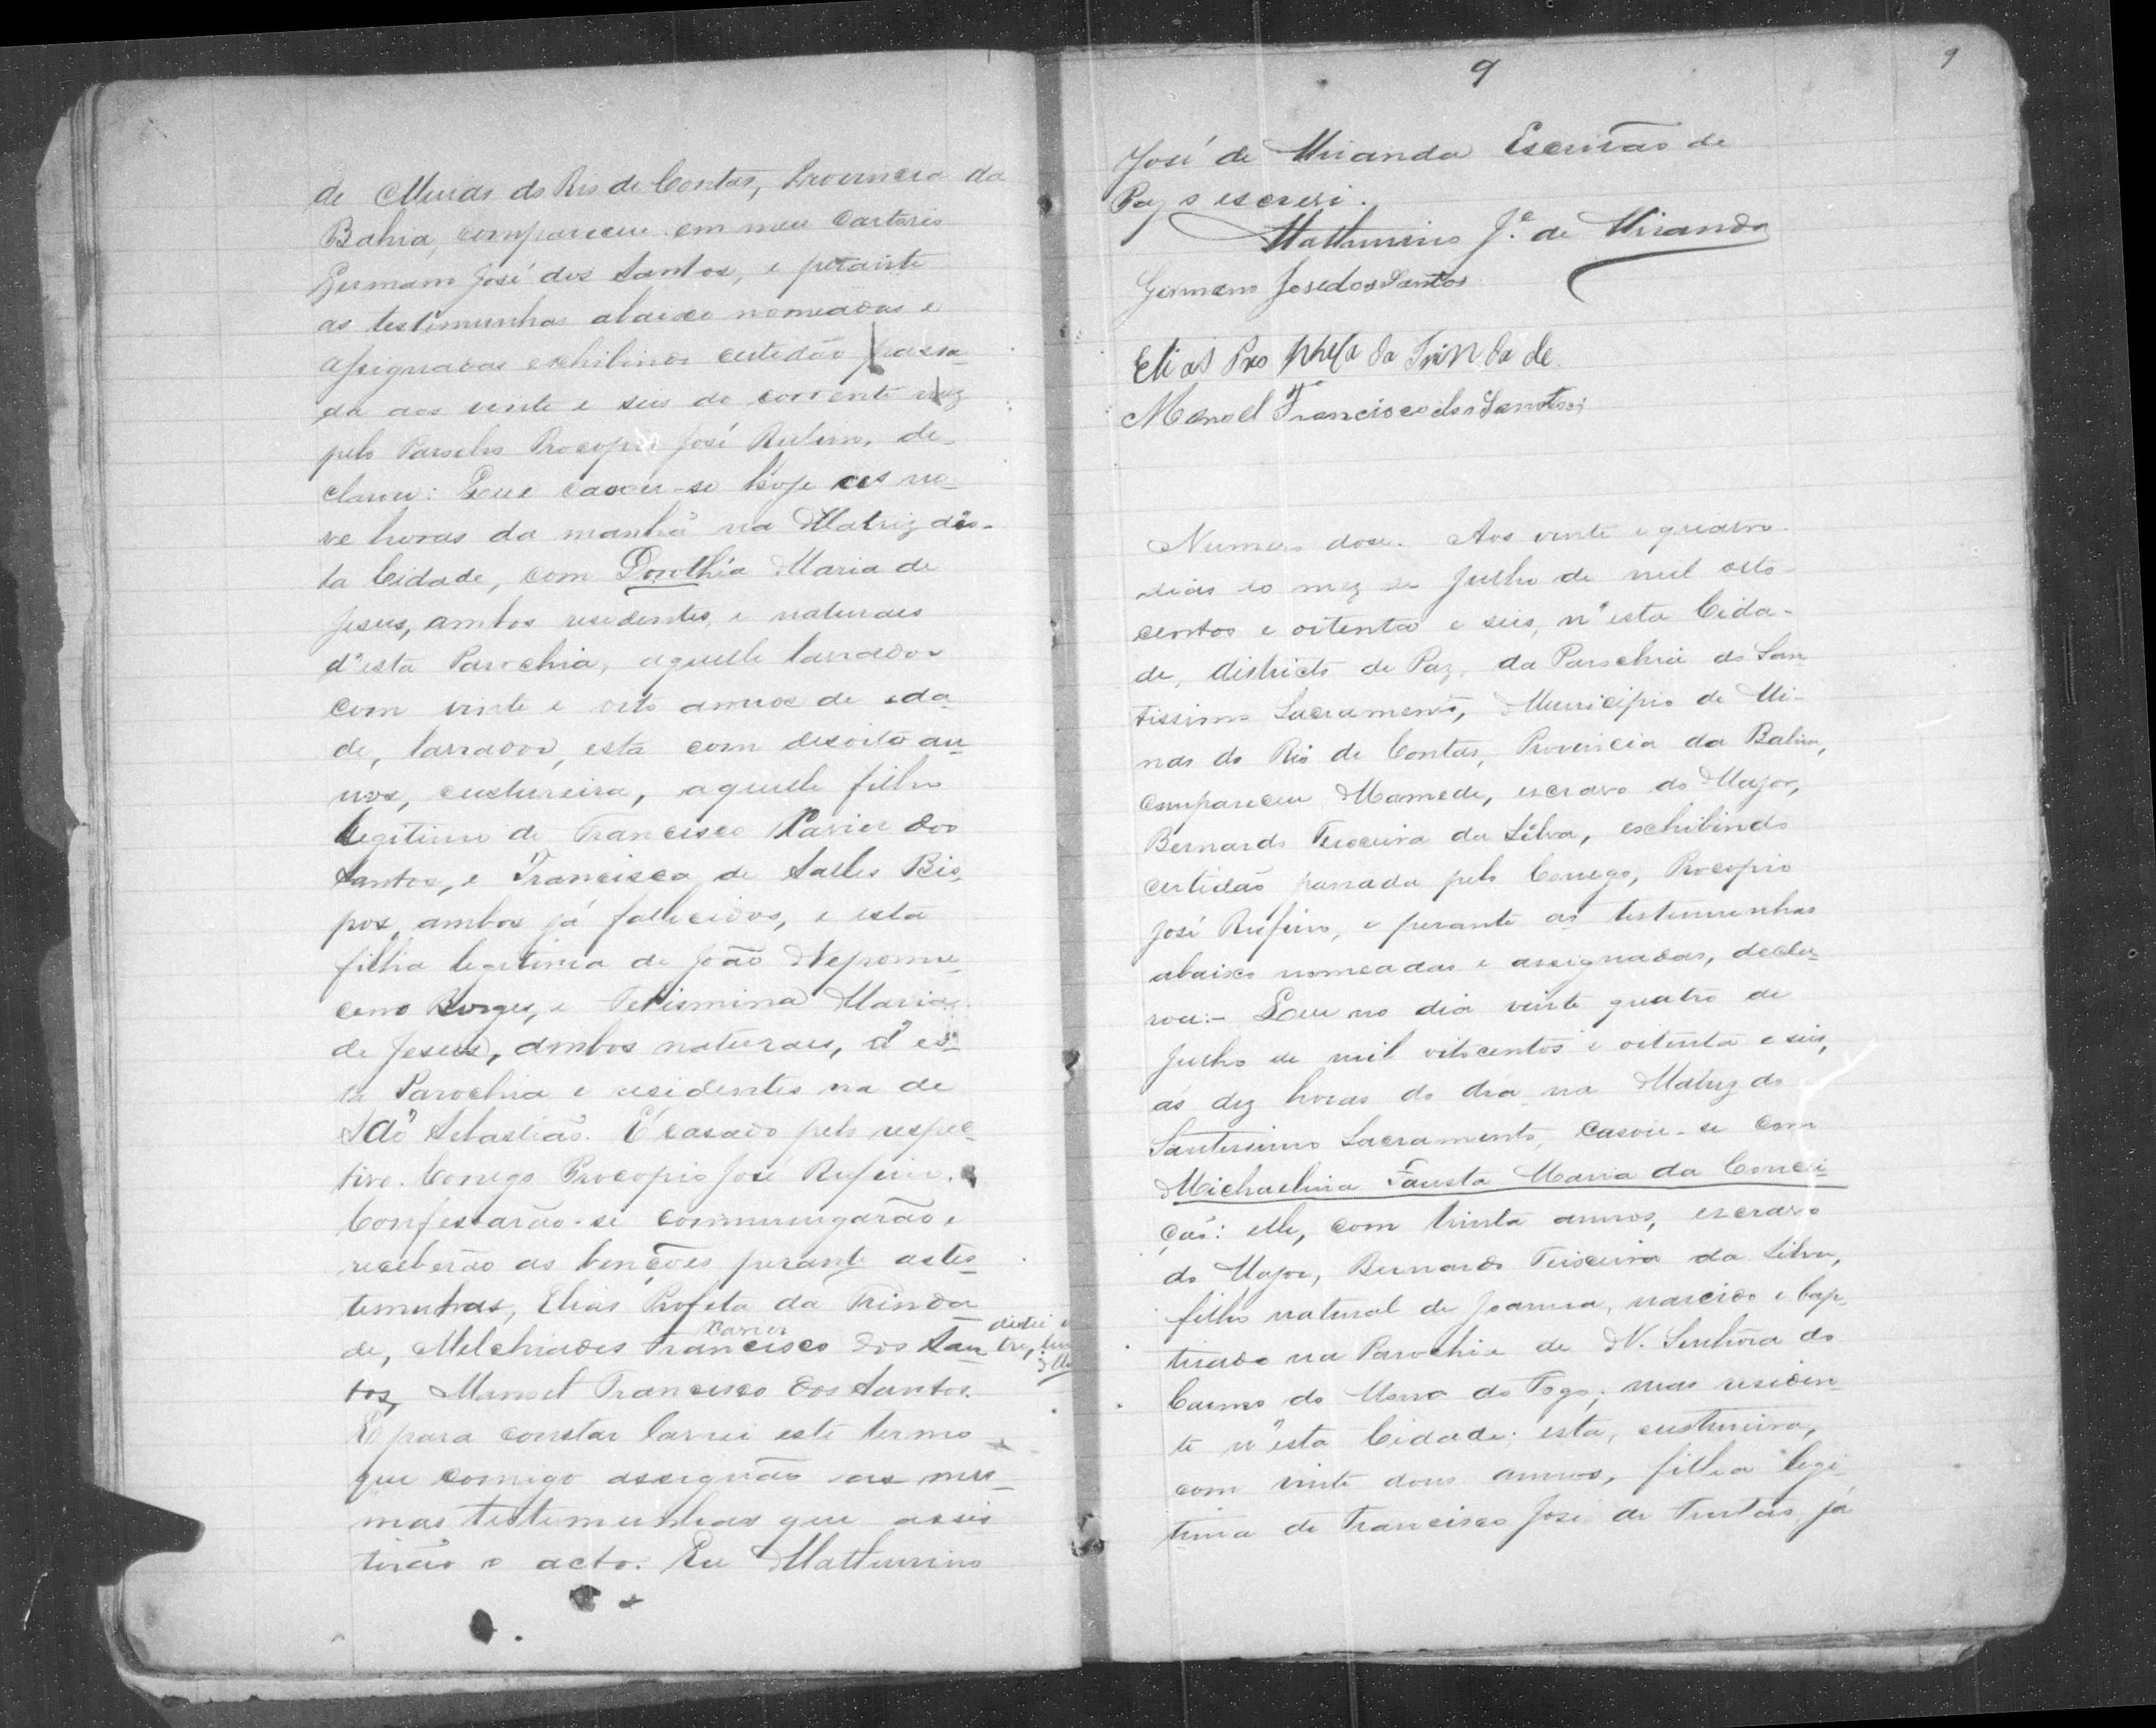 de Minas do Rio de Contas, Provincia da
Bahia, compareceu em meu Cartorio
Germano José dos Santos, e perante
as testimunhas abaixo nomeadas e
assignadas exhibindo certidão passa-
da aos vinte e seis do corrente mez
pelo Parocho Procopio José Rufino, de-
clarou: Que casou-se hoje as no-
ve horas da manhã na Matriz des-
ta Cidade, com Dorothéa Maria de
Jesus, ambos residentes, e naturaes
d'esta Parochia, aquelle lavrador
com vinte e oito annos de eda-
de, lavrador, esta com desoito an-
nos, custureira, aquelle filho
legitimo de Francisco Xavier dos
Santos, e Francisca de Salles Bis-
pos, ambos já fallecidos, e esta
filha legitima de João Nepomu-
ceno Borges, e Felismina Maria
de Jesus, ambos naturaes, d'es-
ta Parochia e residentes na de
São Sebastião. E casado pelo respec-
tivo. Conego Procopio José Rufino.
Confessarão-se commungarão e
receberão as bençoes perante as tes-
temuhas, Elias Profeta da Trinda
de, Melchiades Francisco dos San
Xavier
tos, Manoel Francisco dos Santos.
E para constar lavrei este termo
que comigo assignão as mes-
mas testemunhas que assis
tirão o acto. Eu Mathurino
9
9
José de Miranda Escrivão de
Paz o escrevi.
Mathurino Je. de Miranda
Germano Jose dos Santos
Elias Pro pheta da Trin da de
Manoel Francisco dos Santos
Numero dose. Aos vinte e quatro
dias do mez de Julho de mil oito-
centos e oitenta e seis, n'esta Cida-
de, districto de Paz, da Parochia do San
tissimo Sacramento, Municipio de Mi-
nas do Rio de Contas, Provincia da Bahia,
compareceu Mamede, escravo do Major,
Bernardo Teixeira da Silva, exhibindo
certidão passada pelo Conego, Procopio
José Rufino, e perante as testemunhas
abaixo nomeadas e assignadas, decla-
rou:- Que no dia vinte quatro de
Julho de mil oitocentos e oitenta e seis,
ás dez horas do dia na Matriz do
Santissimo Sacramento, casou-se com
Michaelina Fausta Maria da Concei
ção: elle, com trinta annos, escravo
do Major, Bernardo Teixeira da Silva,
filho natural de Joanna, nascido e bap-
tisado na Parochia de N. Senhora do
Carmo do Morro do Fogo, mas residen-
te n'esta Cidade: esta, custureira,
com vinte dous annos, filha legi-
tima de Francisco José de Freitas já